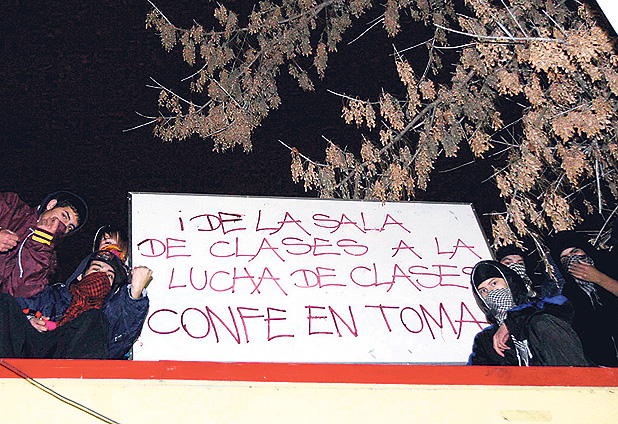 ¡DE LA SALA
DE CLASES A LA
LUCHA DE CLASES
CONFE EN TOMA